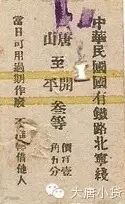 中華民國國有鐵路北寧綫
唐山至開平叁等
角五分
當日可用過期作廢 不借他人
大唐小货